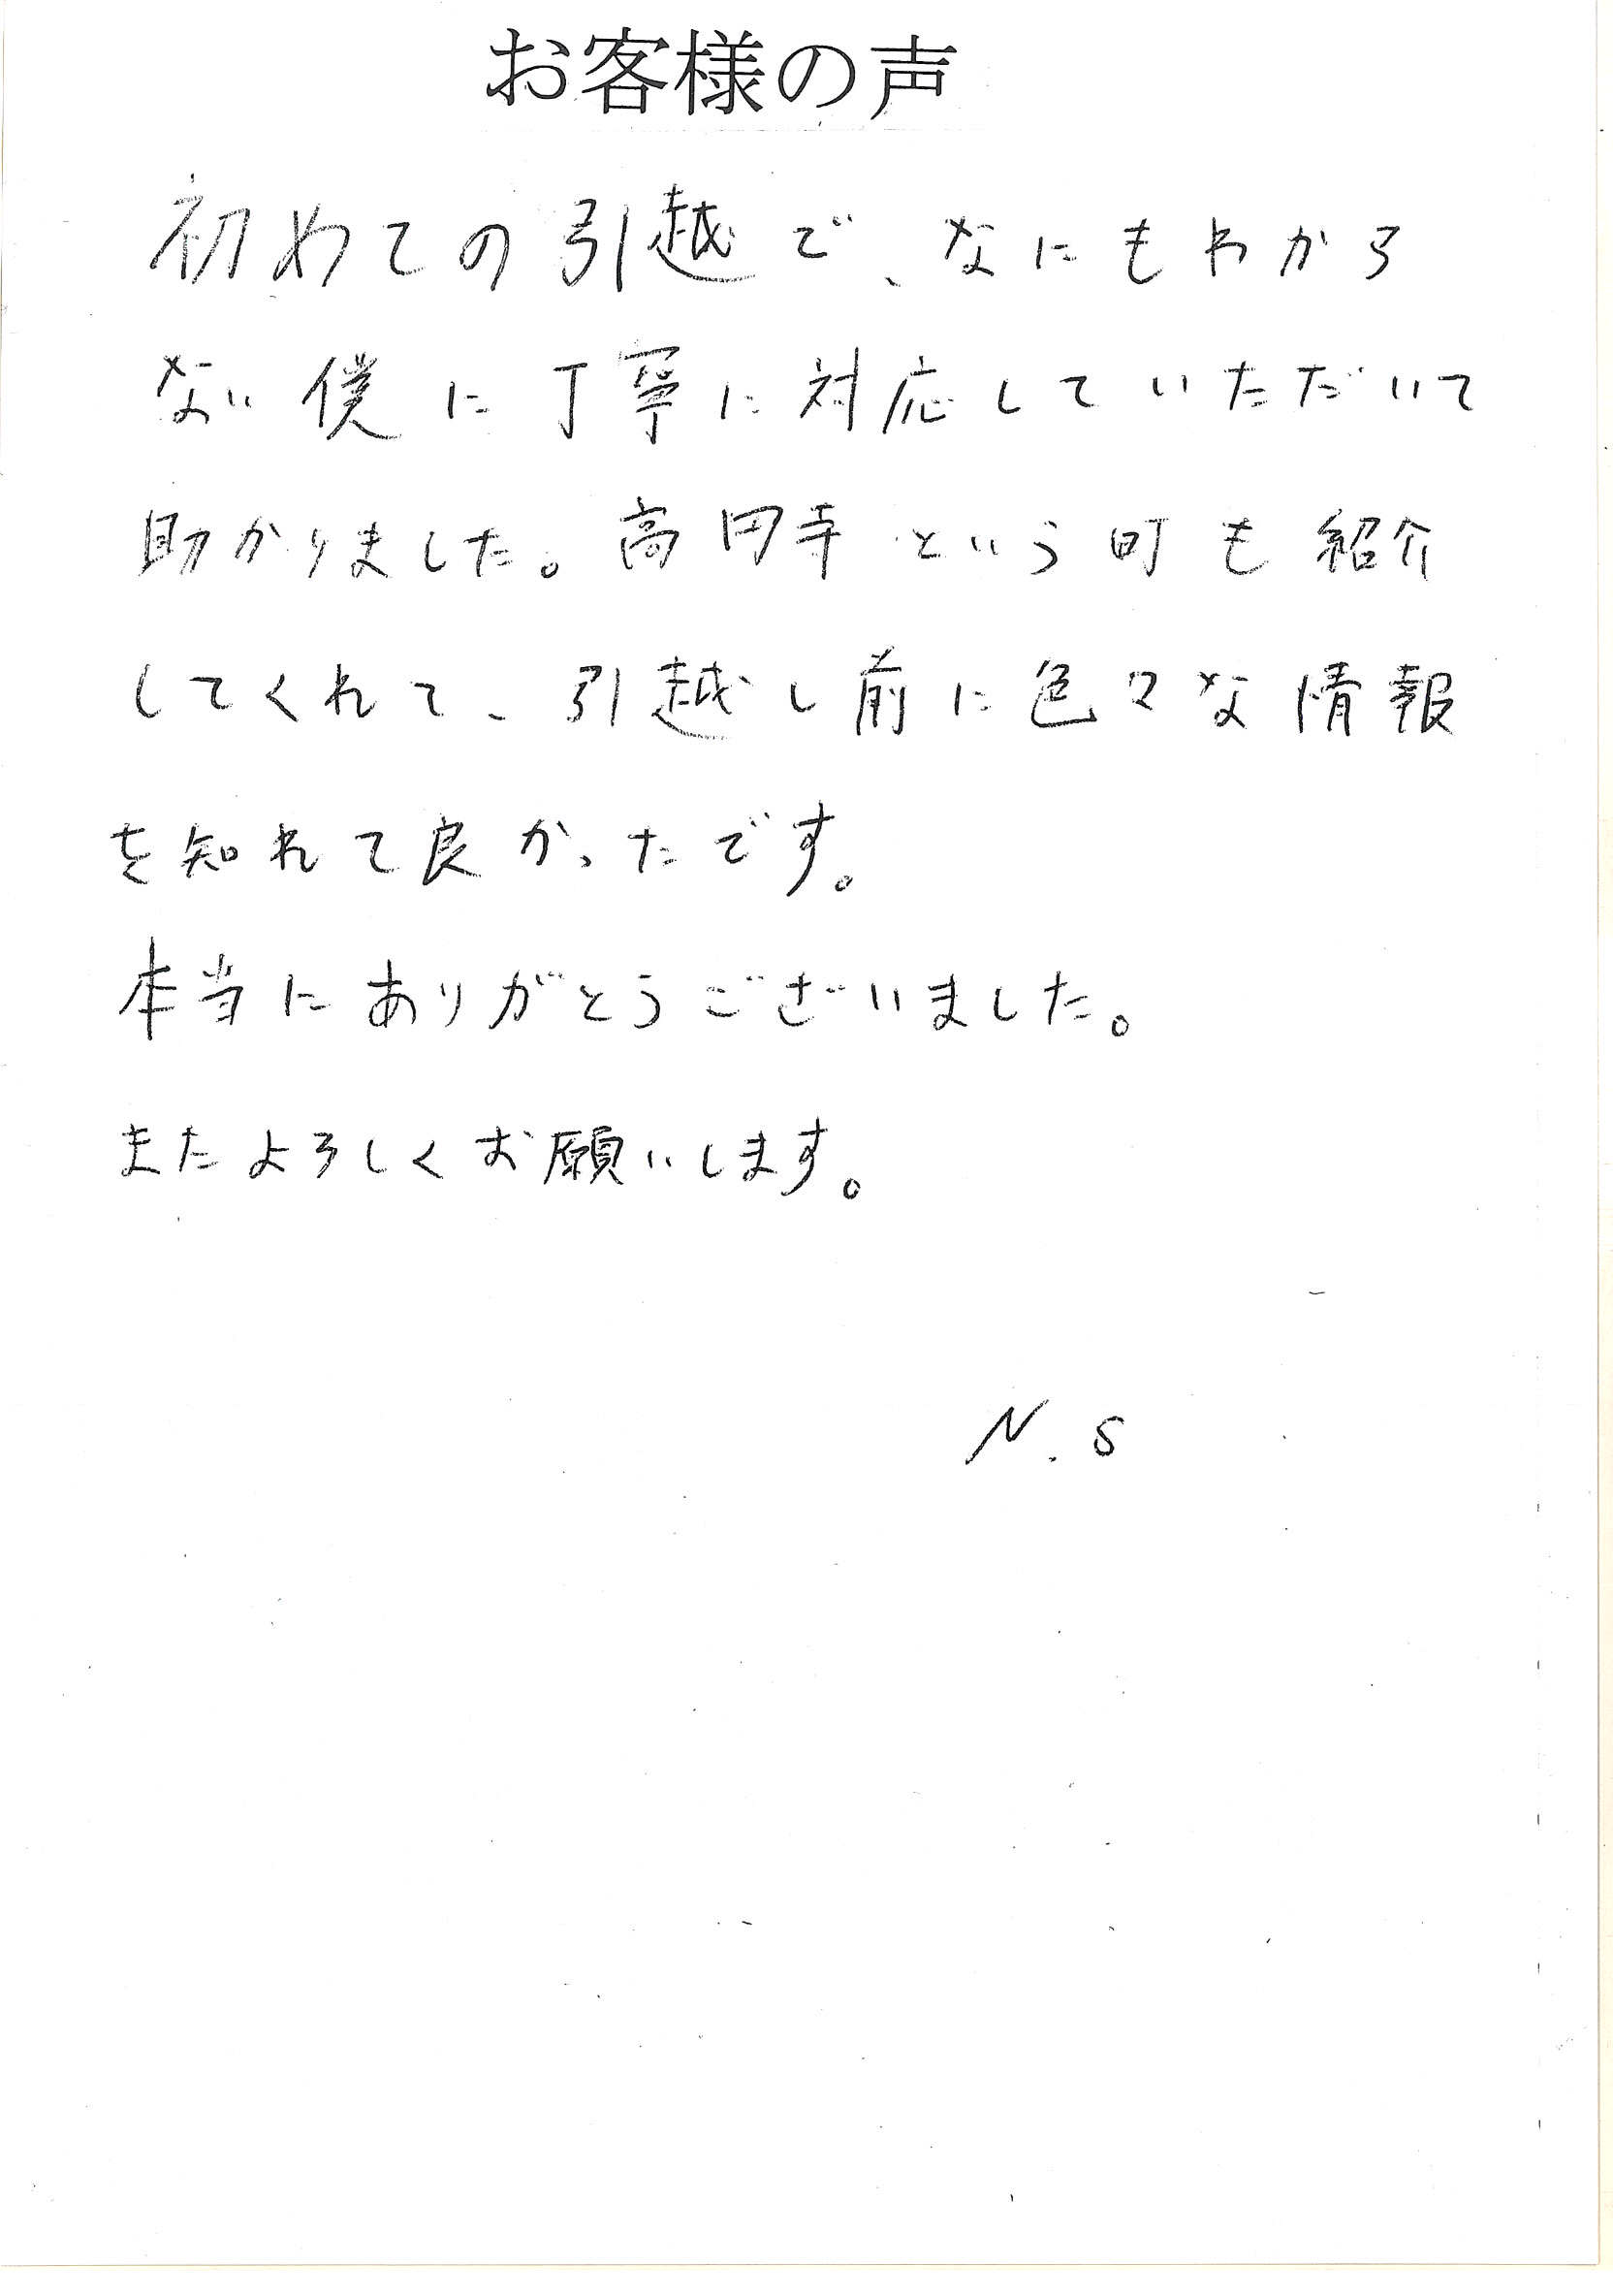 お客様の声
初めての引越で、なにもわから
ない僕に丁寧に対応していただいて
助かりました。高円寺という町も紹介
してくれて、引越し前に色々な情報
を知れて良かったです。
本当にありがとうございました。
またよろしくお願いします。
N.S